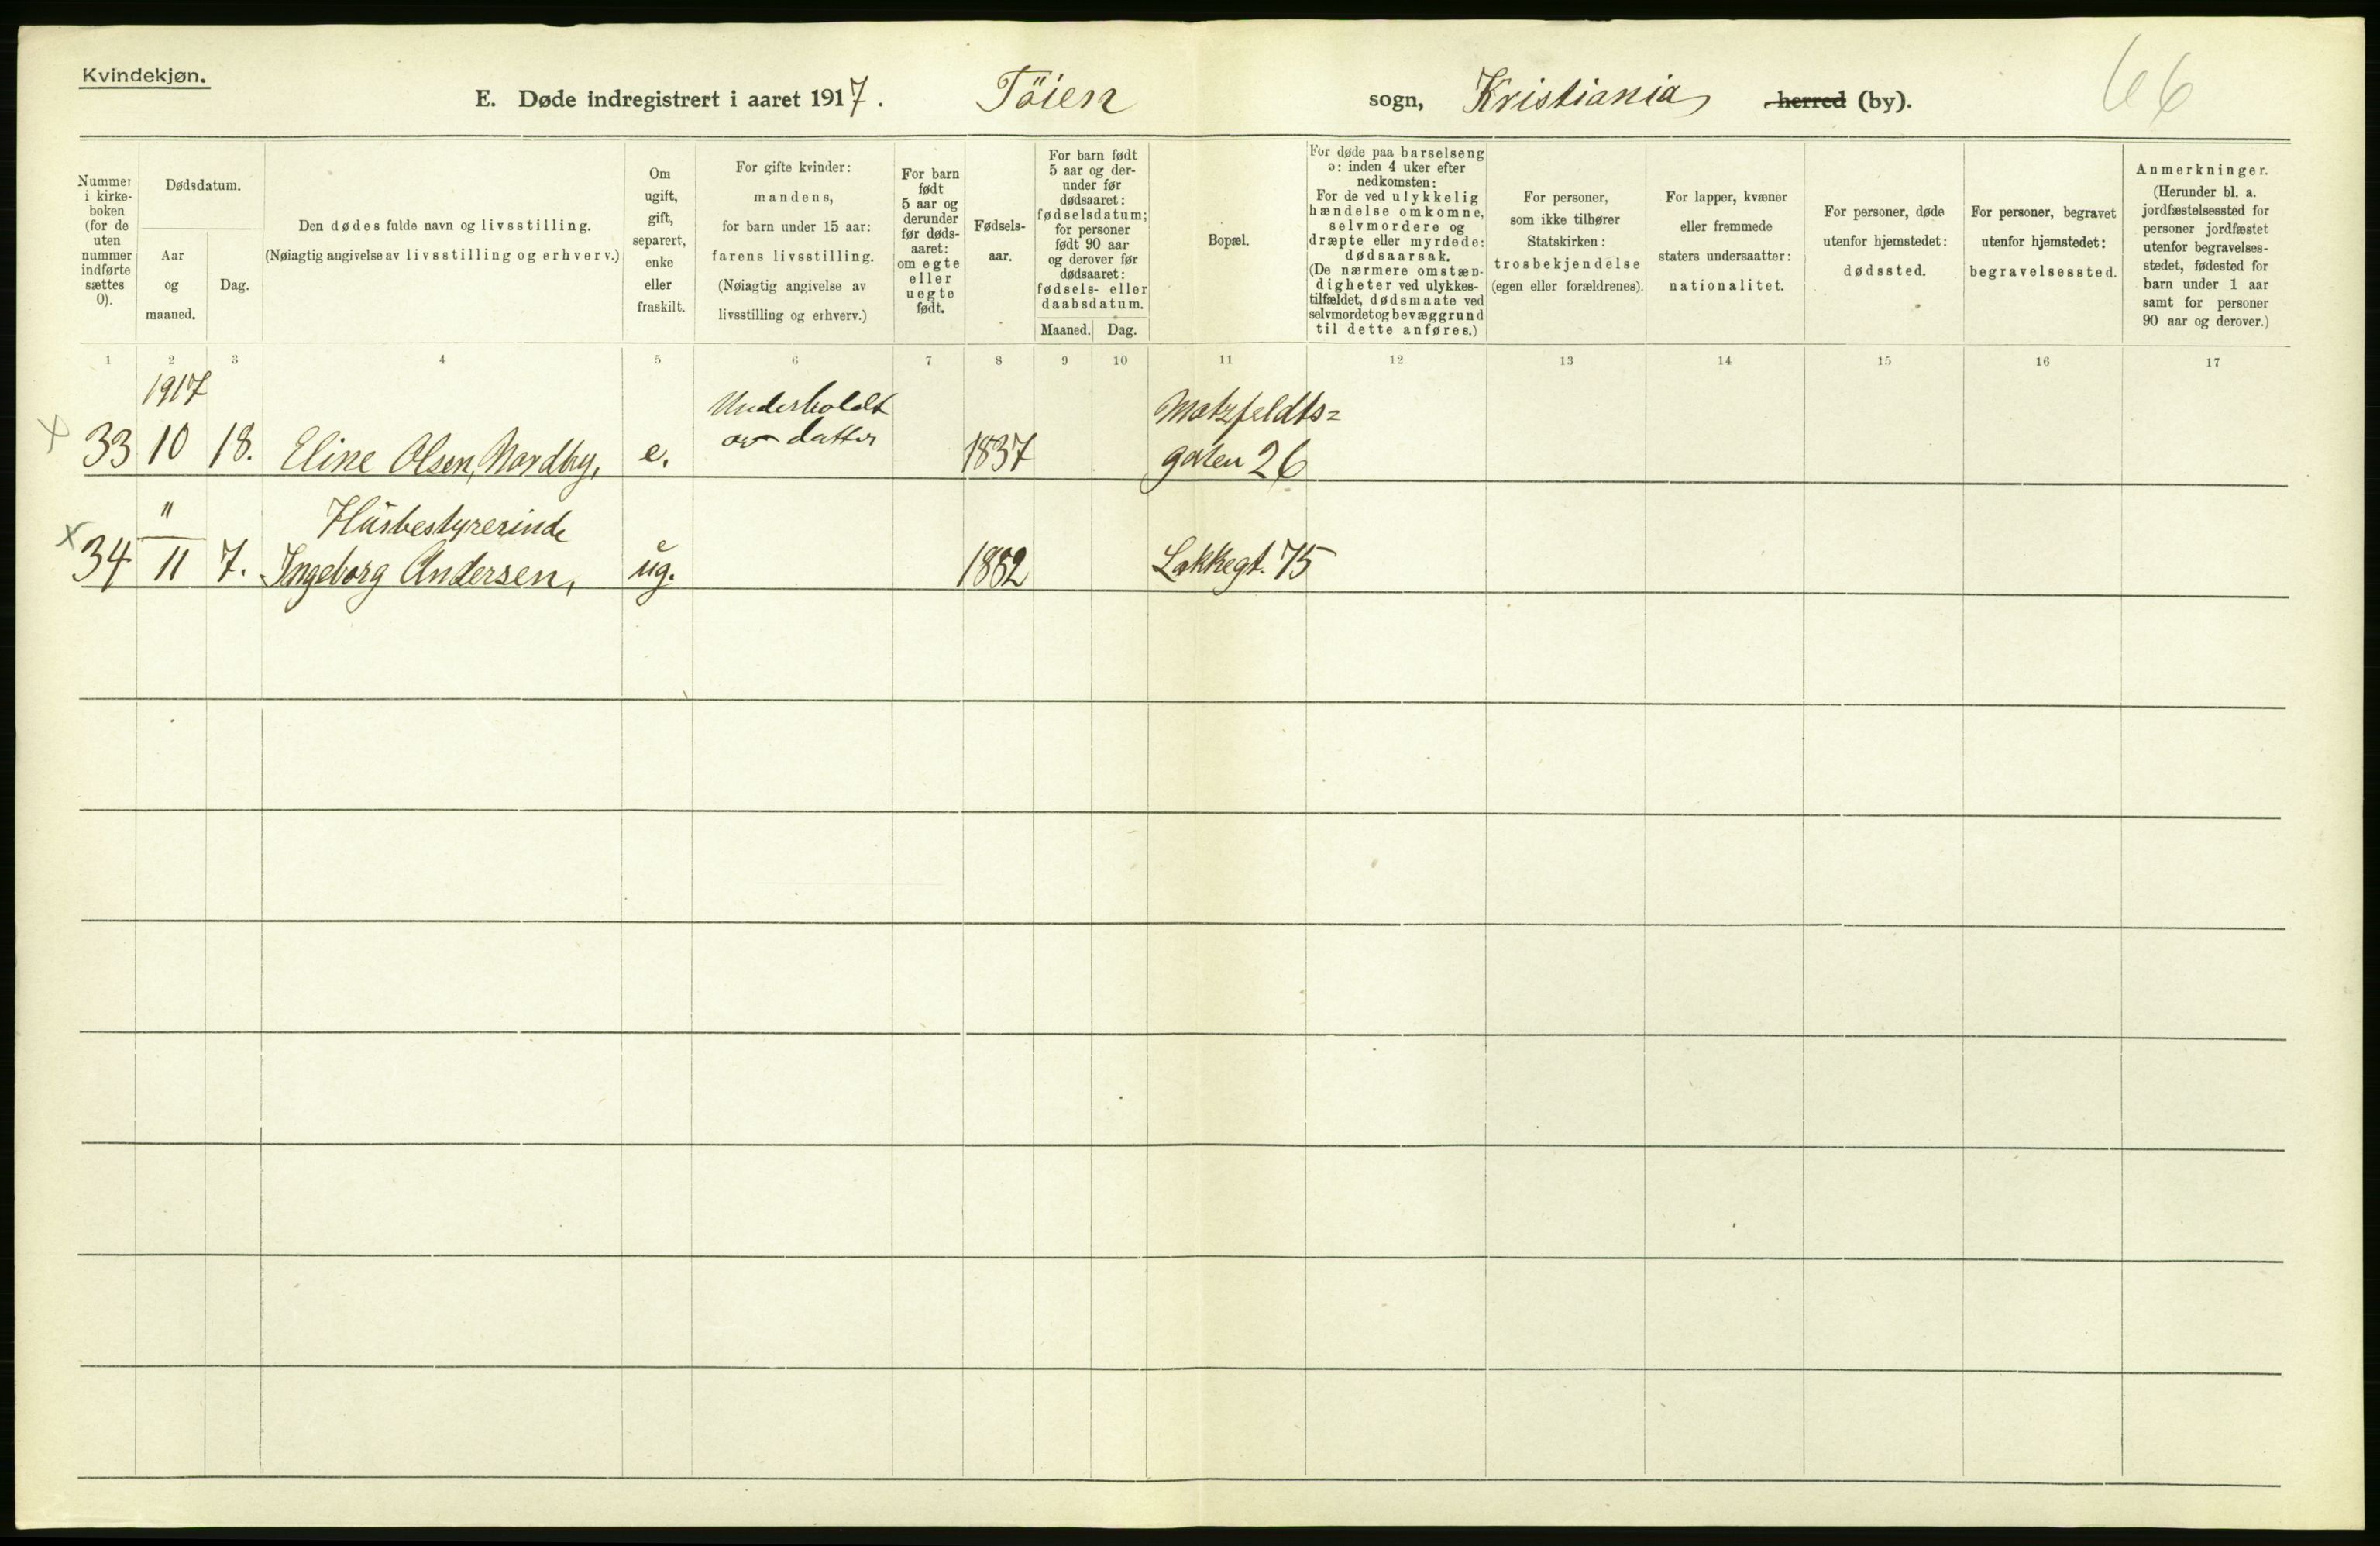 Kvindekjøn.
E. Døde indregistrert i aaret 1917. Töien sogn, Kristiania herred (by).
66
Nummer
i kirke-
boken
(for de
uten
nummer
indførte
sættes
0).
Dødsdatum.
Aar
og
maaned.
Dag.
Den dødes fulde navn og livsstilling.
(Nøiagtig angivelse av livsstilling og erhverv.)
Om
ugift,
gift,
separert,
enke
eller
fraskilt.
For gifte kvinder:
mandens,
for barn under 15 aar:
farens livsstilling.
(Nøiagtig angivelse av
livsstilling og erhverv.)
For barn
født
5 aar og
derunder
før døds-
aaret:
om egte
eller
uegte
født.
Fødsels-
aar.
For barn født
5 aar og der-
under før
dødsaaret:
fødselsdatum;
for personer
født 90 aar
og derover før
dødsaaret:
fødsels- eller
daabsdatum.
Maaned. Dag.
Bopæl.
For døde paa barselseng
ɔ: inden 4 uker efter
nedkomsten:
For de ved ulykkelig
hændelse omkomne,
selvmordere og
dræpte eller myrdede:
dødsaarsak.
(De nærmere omstæn-
digheter ved ulykkes-
tilfældet, dødsmaate ved
selvmordet og bevæggrund
til dette anføres.)
For personer,
som ikke tilhører
Statskirken:
trosbekjendelse
(egen eller forældrenes).
For lapper, kvæner
eller fremmede
staters undersaatter:
nationalitet.
For personer, døde
utenfor hjemstedet:
dødssted.
For personer, begravet
utenfor hjemstedet:
begravelsessted.
Anmerkninger.
(Herunder bl. a.
jordfæstelsessted for
personer jordfæstet
utenfor begravelses-
stedet, fødested for
barn under 1 aar
samt for personer
90 aar og derover.)
1 2 3 4 5 6 7 8 9 10 11 12 13 14 15 16 17
1917
Underholdt
av datter
Motzfeldts=
x 33 10 18. Eline Olsen, Nordby, e. 1837 gaten 26
" Husbestyrerinde
x 34 11 7. Ingeborg Andersen, ug. 1882 Lakkegt. 75